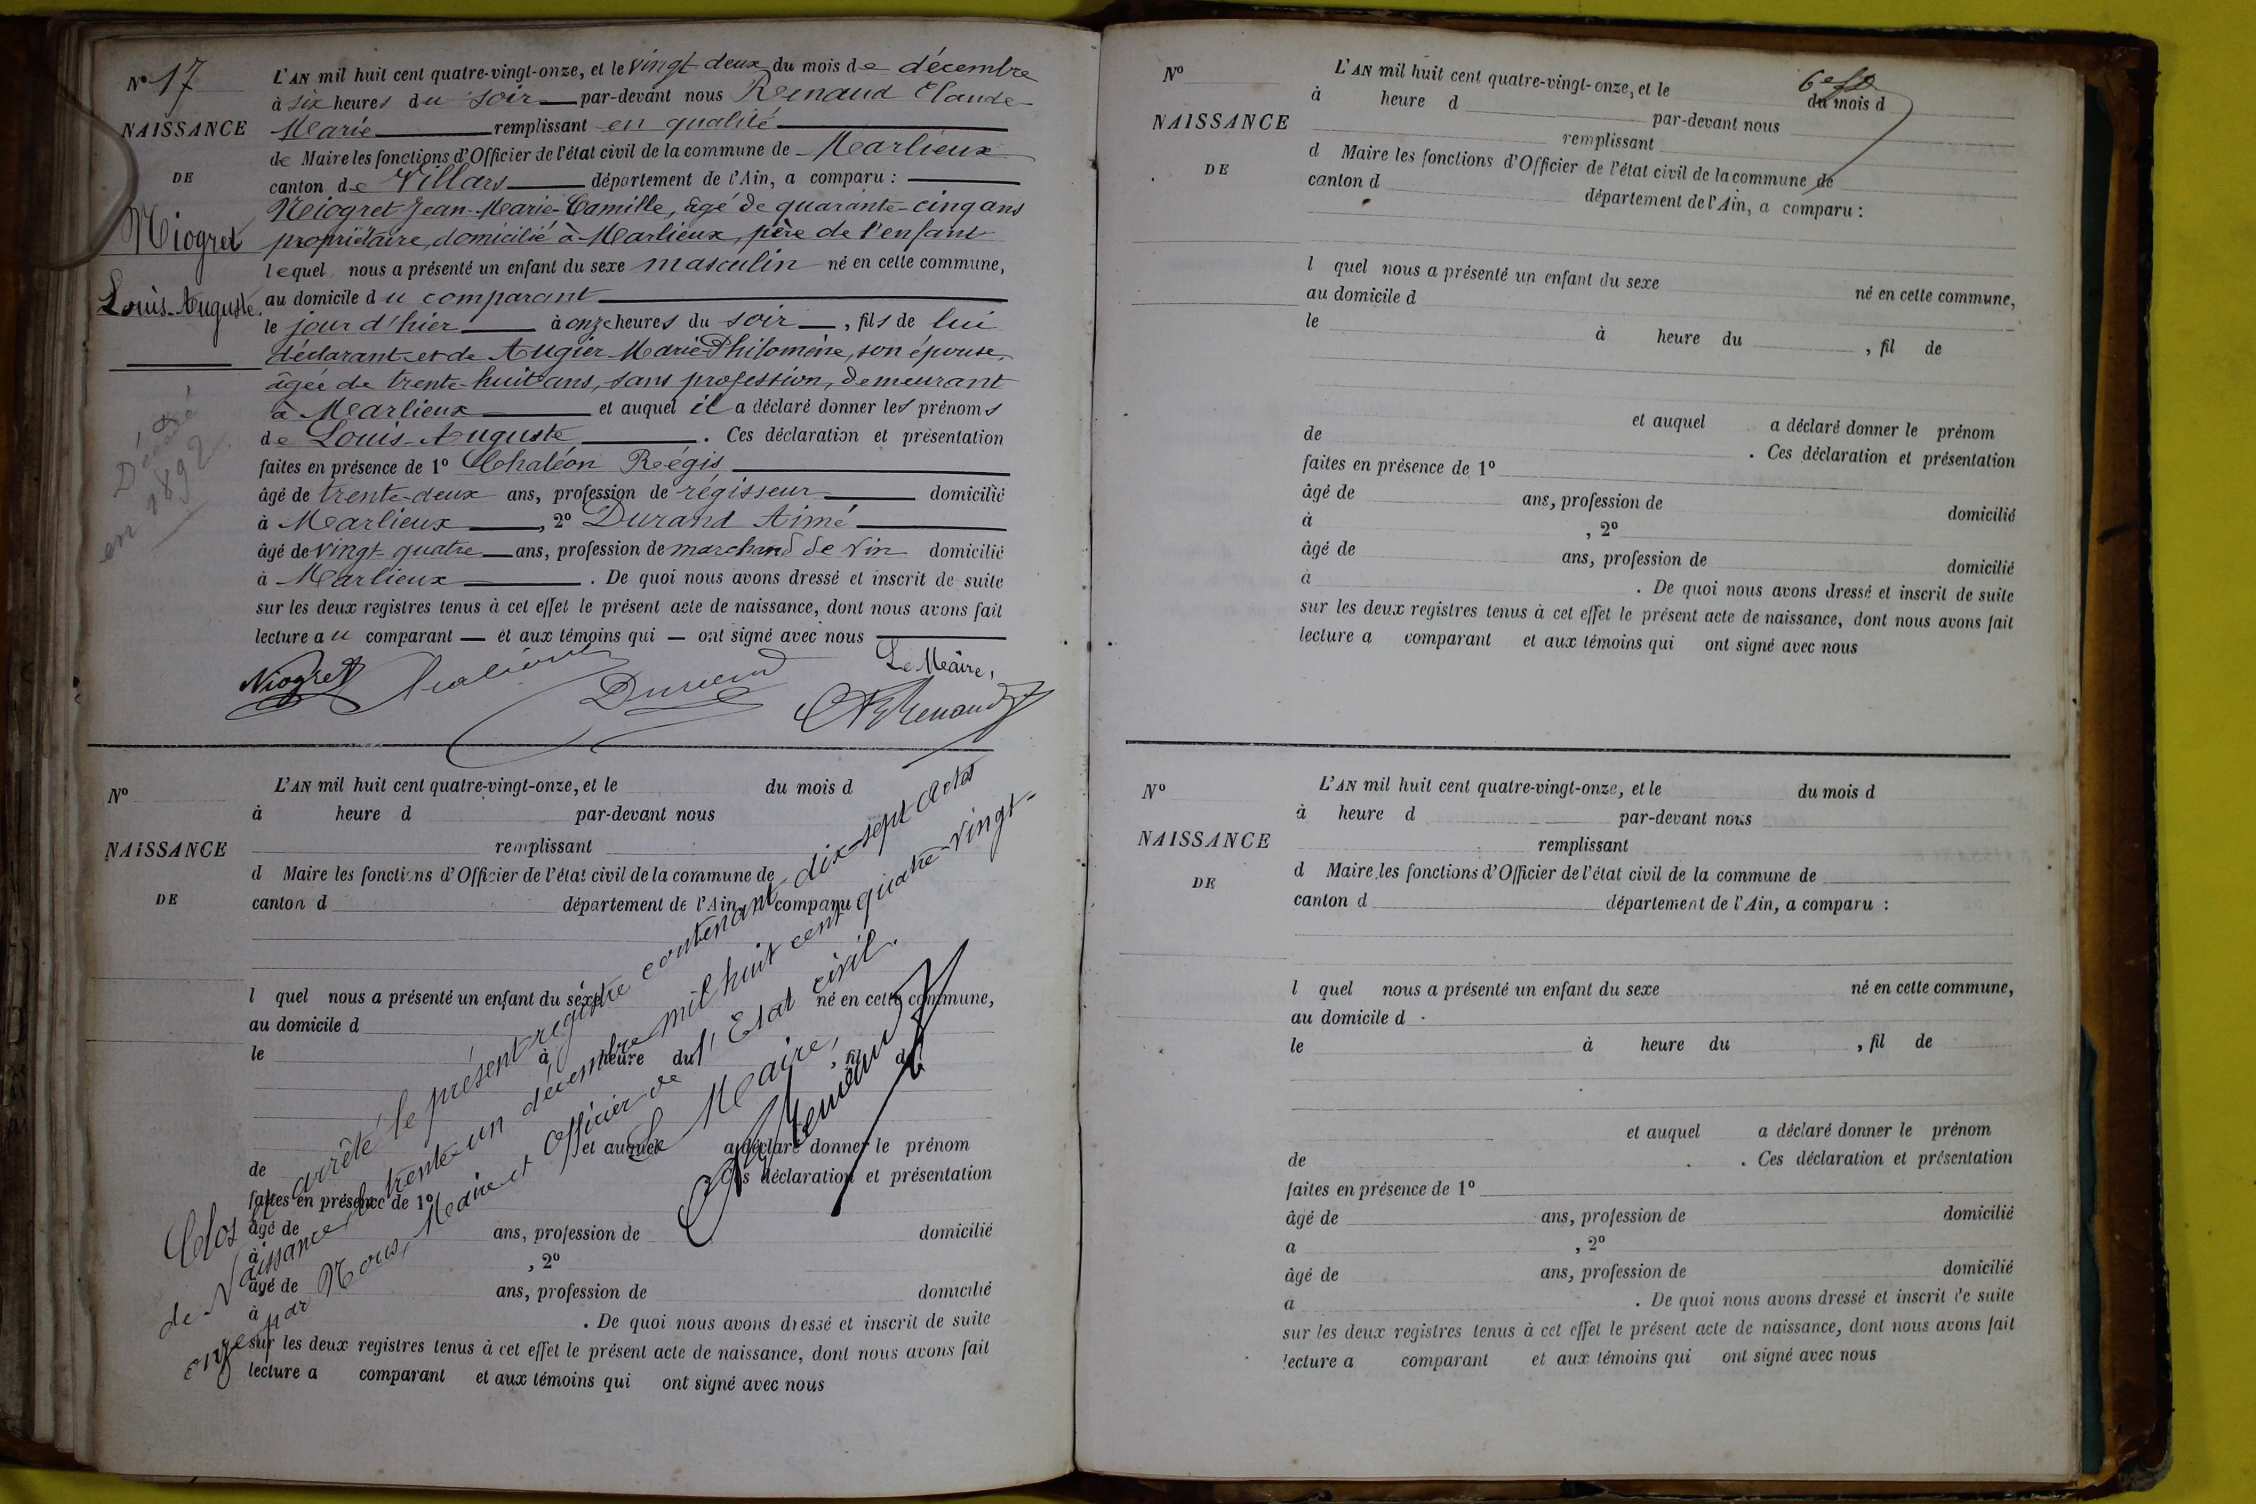 N° 17
NAISSANCE
DE
Niogret
Louis-Auguste.
Décédé
en 1892
L'AN mil huit cent quatre-vingt-onze, et le vingt deux du mois de décembre
à six heures du soir par-devant nous Renaud Claude-
Marie remplissant en qualité
de Maire les fonctions d'Officier de l'état civil de la commune de Marlieux
canton de Villars département de l'Ain, a comparu :
Niogret Jean-Marie-Camille, âgé de quarante-cinq ans
propriétaire, domicilié à Marlieux, père de l'enfant
lequel nous a présenté un enfant du sexe masculin né en cette commune,
au domicile du comparant
le jour d'hier à onze heures du soir, fils de lui
déclarant et de Augier Marie Philomène, son épouse,
âgée de trente-huit ans, sans profession, demeurant
à Marlieux et auquel il a déclaré donner les prénoms
de Louis-Auguste. Ces déclaration et présentation
faites en présence de 1° Chaléon Régis
âgé de trente-deux ans, profession de régisseur domicilié
à Marlieux, 2° Durand Aimé
âgé de vingt-quatre ans, profession de marchand de vin domicilié
à Marlieux. De quoi nous avons dressé et inscrit de suite
sur les deux registres tenus à cet effet le présent acte de naissance, dont nous avons fait
lecture au comparant et aux témoins qui ont signé avec nous
Le Maire,
Niogret Chaléon Durand Renaud
N°
NAISSANCE
DE
L'AN mil huit cent quatre-vingt-onze, et le du mois d
à heure d par-devant nous
remplissant
d Maire les fonctions d'Officier de l'état civil de la commune de
canton d département de l'Ain, a comparu
l quel nous a présenté un enfant du sexe né en cette commune,
au domicile d
le à heure du , fil de
et auquel a déclaré donner le prénom
de . Ces déclaration et présentation
faites en présence de 1°
âgé de ans, profession de domicilié
à , 2°
âgé de ans, profession de domicilié
à . De quoi nous avons dressé et inscrit de suite
sur les deux registres tenus à cet effet le présent acte de naissance, dont nous avons fait
lecture a comparant et aux témoins qui ont signé avec nous
Clos et arrêté le présent registre contenant dix-sept actes
de Naissance, le trente-un décembre mil huit cent quatre-vingt-
onze par Nous, Maire et Officier de l'Etat civil.
Le Maire,
Renaud
6e
N°
NAISSANCE
DE
L'AN mil huit cent quatre-vingt-onze, et le du mois d
à heure d par-devant nous
remplissant
d Maire les fonctions d'Officier de l'état civil de la commune de
canton d département de l'Ain, a comparu :
l quel nous a présenté un enfant du sexe né en cette commune,
au domicile d
le à heure du , fil de
et auquel a déclaré donner le prénom
de . Ces déclaration et présentation
faites en présence de 1°
âgé de ans, profession de domicilié
à , 2°
âgé de ans, profession de domicilié
à . De quoi nous avons dressé et inscrit de suite
sur les deux registres tenus à cet effet le présent acte de naissance, dont nous avons fait
lecture a comparant et aux témoins qui ont signé avec nous
N°
NAISSANCE
DE
L'AN mil huit cent quatre-vingt-onze, et le du mois d
à heure d par-devant nous
remplissant
d Maire les fonctions d'Officier de l'état civil de la commune de
canton d département de l'Ain, a comparu :
l quel nous a présenté un enfant du sexe né en cette commune,
au domicile d
le à heure du , fil de
et auquel a déclaré donner le prénom
de . Ces déclaration et présentation
faites en présence de 1°
âgé de ans, profession de domicilié
a , 2°
âgé de ans, profession de domicilié
a . De quoi nous avons dressé et inscrit de suite
sur les deux registres tenus à cet effet le présent acte de naissance, dont nous avons fait
lecture a comparant et aux témoins qui ont signé avec nous